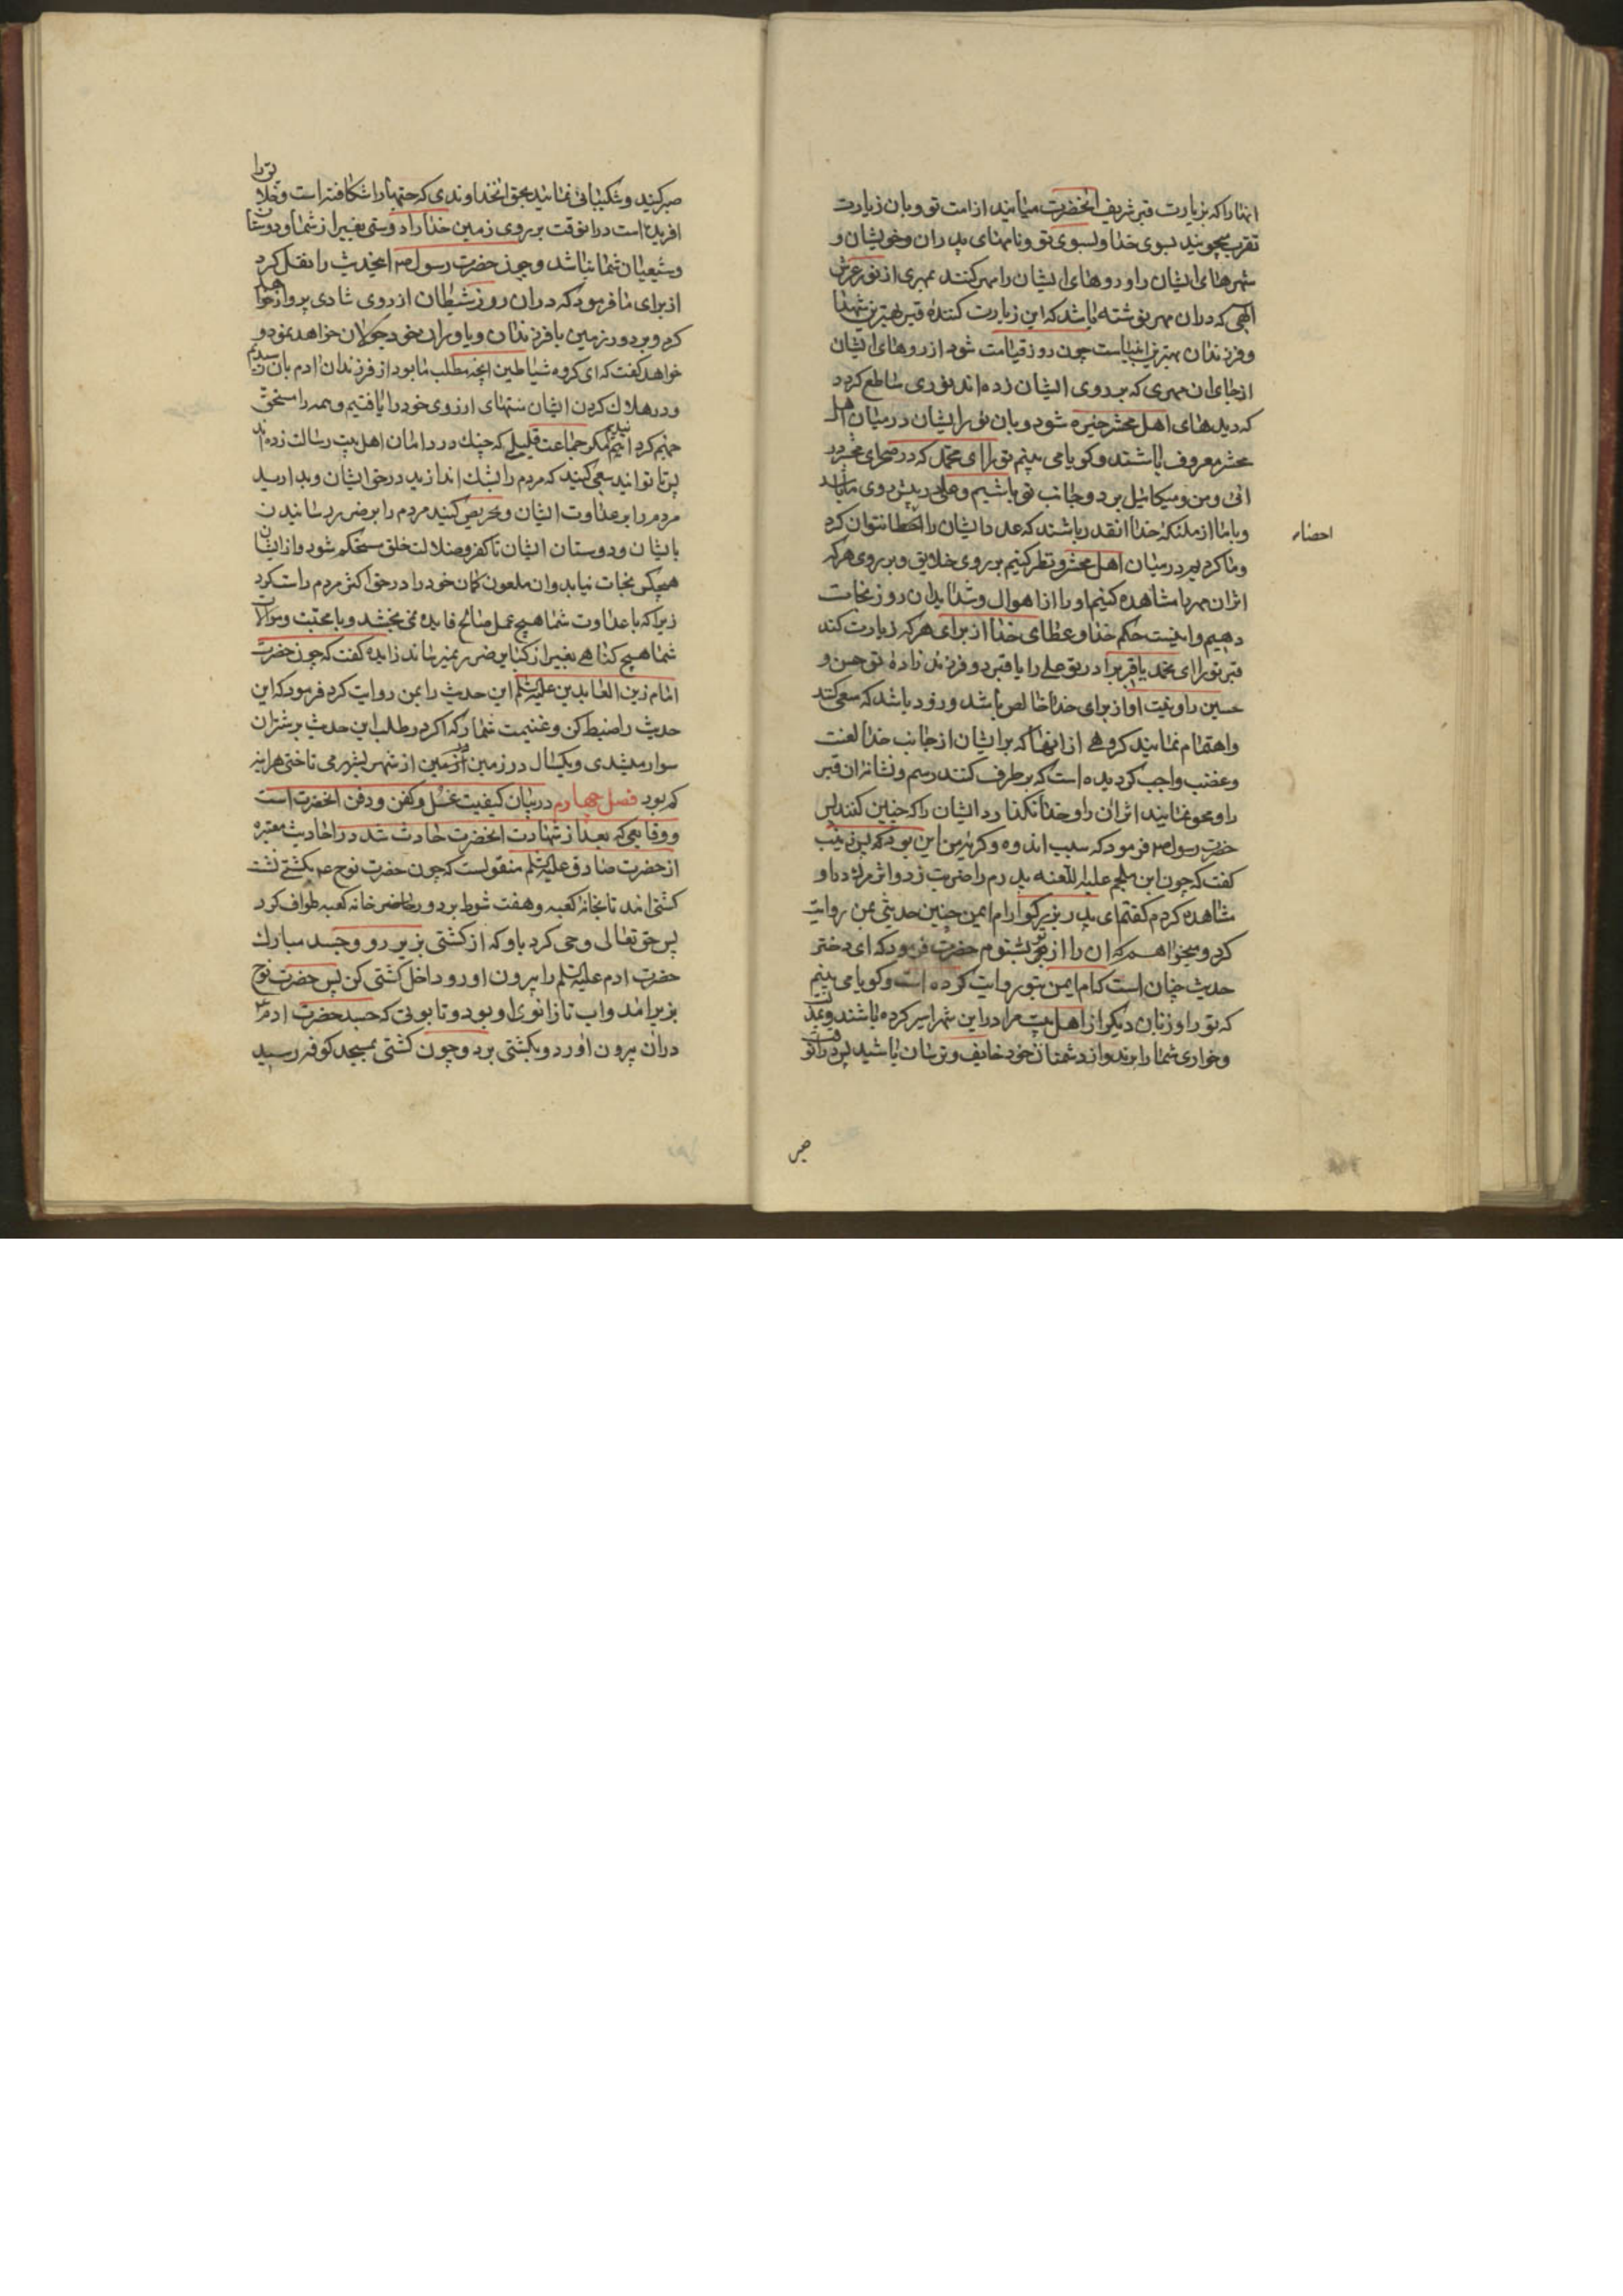 انها را که بزیارت قبر شریف آنحضرت میایند از امت تو و بان زیارت
تقرب میجویند بسوی خدا و بسوی تو و نامهای پدران و خویشان و
شهرهای ایشان را و روهای ایشان را مهر کنند بمهری از نور عرش
الهی که دران مهر نوشته باشد که این زیارت کنندهٔ قبر بهترین شهدا
و فرزندان بهترین انبیاست چون روز قیامت شود از روهای ایشان
از جای ان مهری که بر روی ایشان زده اند نوری ساطع کردد
که دیدهای اهل محشر خیره شود و بان نور ایشان در میان اهل
محشر معروف باشند و کویا می بینم تو را ای محمد که در صحرای محشر در
ائی و من و میکائیل بر دو جانب تو باشیم و علی در پیش روی ما باشد
و با ما از ملئکهٔ خدا انقدر باشند که عدد ایشان را احطا نتوان کرد
احصاء
و ما کردیم در میان اهل محشر و نظر کنیم بر روی خلایق و بر روی هر که
اثر ان مهر را مشاهده کنیم او را از اهوال و شداید ان روز نجات
دهیم و اینست حکم خدا و عطای خدا از برای هر که زیارت کند
قبر تو را ای محمد یا قبر برادر تو علی را یا قبر دو فرزند زادهٔ تو حسن و
حسین را و نیت او از برای خدا خالص باشد و زود باشد که سعی کنند
و اهتمام نمایند کروهی از انها که بر ایشان از جانب خدا لعنت
و غضب واجب کردیده است که بر طرف کنند رسم و نشانهٔ ان قبر
را و محو نمایند اثر ان را و خدا نکذارد ایشان را که چنین کنند پس
حضرت رسول ص فرمود که سبب اندوه و کریهٔ من این بود که پس زینب
کفت که چون ابن ملجم علیه اللعنه پدرم را ضربت زد و اثر مرک در او
مشاهده کردم کفتم ای پدر بزرکوار ام ایمن چنین حدیثی بمن روایت
کرد و میخواهم که ان را از تو بشنوم حضرت فرمود که ای دختر
حدیث چنان است که ام ایمن بتو روایت کرده است و کویا می بینم
که تو را و زنان دیکر از اهل بیت مرا در این شهر اسیر کرده باشند و بمذلت
و خواری شما را برند و از دشمنان خود خایف و ترسان باشید پس در انوقت
صبر
صبر کنید و شکیبائی نمائید بحق انخداوندی که حبها را شکافته است و خلایق را
افریده است در انوقت بر روی زمین خدا را دوستی بغیر از شما و دوستان
و شیعیان شما نباشد و چون حضرت رسول ص اینحدیث را نقل کرد
از برای ما فرمود که در ان روز شیطان از روی شادی پرواز خواهد
کرد و بر دور زمین با فرزندان و یاوران خود جولان خواهد نمود و
خواهد کفت که ای کروه شیاطین انچه مطلب ما بود از فرزندان ادم بان رسیدیم
و در هلاک کردن ایشان منتهای ارزوی خود را یافتیم و همه را مستحق
جهنم کردانیدیم مکر جماعت قلیلی که چنک در دامان اهل بیت رسالت زده اند
پس تا توانید سعی کنید که مردم را بشک اندازید در حق ایشان و بدارید
مردم را بر عداوت ایشان و تحریص کنید مردم را بر ضرر رسانیدن
بایشان و دوستان ایشان تا کفر و ضلالت خلق مستحکم شود و از ایشان
هیچکس نجات نیابد و ان ملعون کمان خود را در حق اکثر مردم راست کرد
زیرا که با عداوت شما هیچ عمل صالح فایده نمی بخشد و با محبت و موالات
شما هیچ کناهی بغیر از کبایر ضرر نمیرساند زایده کفت که چون حضرت
امام زین العابدین علیه السلم این حدیث را بمن روایت کرد فرمود که این
حدیث را ضبط کن و غنیمت شمار که اکر در طلب این حدیث بر شتران
سوار میشدی و یکسال در زمین از شهر بشهر می تاختی هراینه
کم بود فصل چهارم در بیان کیفیت غسل و کفن و دفن انحضرت است
و وقایعی که بعد از شهادت انحضرت حادث شد در احادیث معتبره
از حضرت صادق علیه السلم منقولست که چون حضرت نوح ع بکشتی نشست
کشتی امد تا بخانهٔ کعبه و هفت شوط بر دور خانه کعبه طواف کرد
پس حق تعالی وحی کرد باو که از کشتی بزیر رو و جسد مبارک
حضرت ادم علیه السلم را بیرون اور و داخل کشتی کن پس حضرت نوح
بزیر امد و اب تا زانوی او بود و تابوتی که جسد حضرت ادم ع
دران بیرون اورد و بکشتی برد و چون کشتی بمسجد کوفه رسید